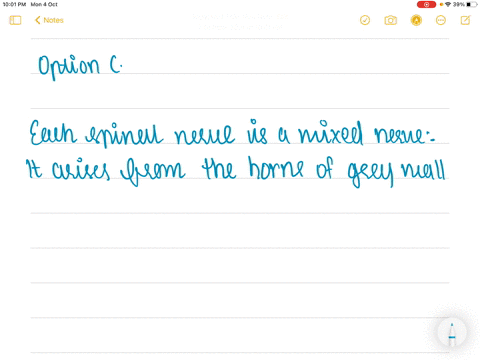 10:01 PM Mon 4 Oct
39%
Notes
Option C.
Each spinal nerve is a mixed nerve:-
It arises from the horns of grey matt